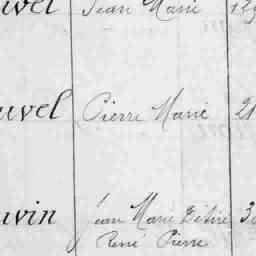 uvel Jean Marie
uvel Pierre Marie 21
uvin Jean Marie Désiré 3
René Pierre